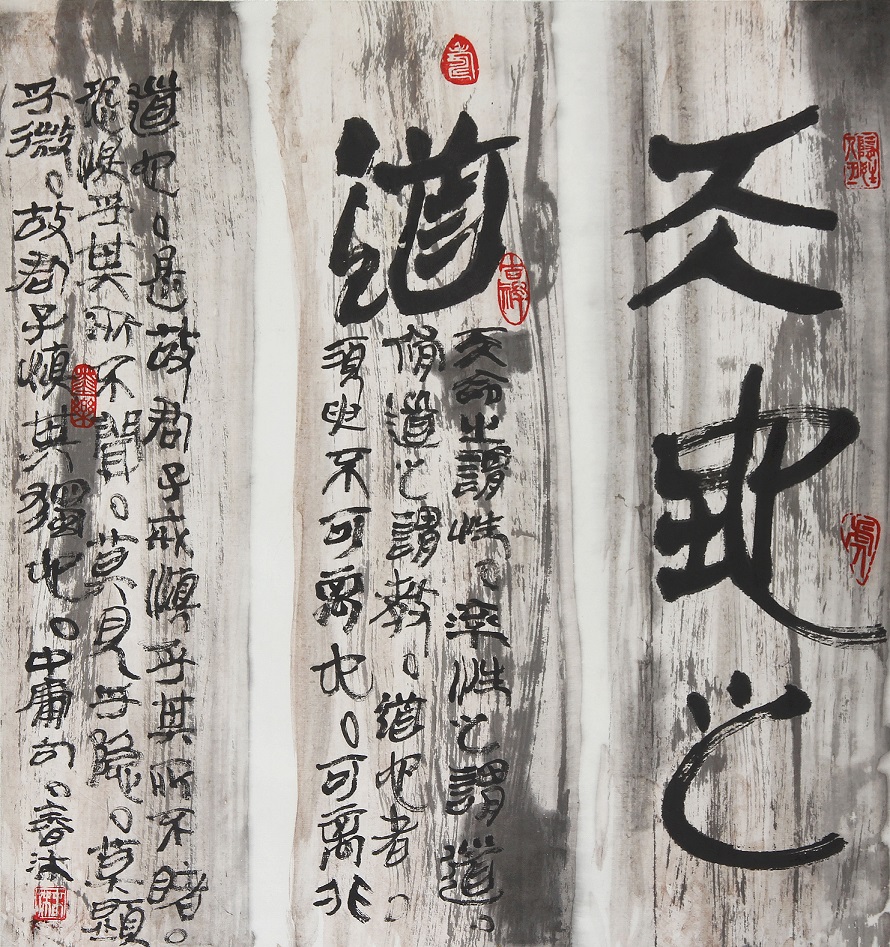 天地之
道
天命之謂性。率性之謂道。
脩道之謂教。道也者。
須臾不可離也。可離非
道也。是故君子戒慎乎其所不睹。
恐懼乎其所不聞。莫見乎隐。莫顯
乎微。故君子慎其獨也。中庸句。